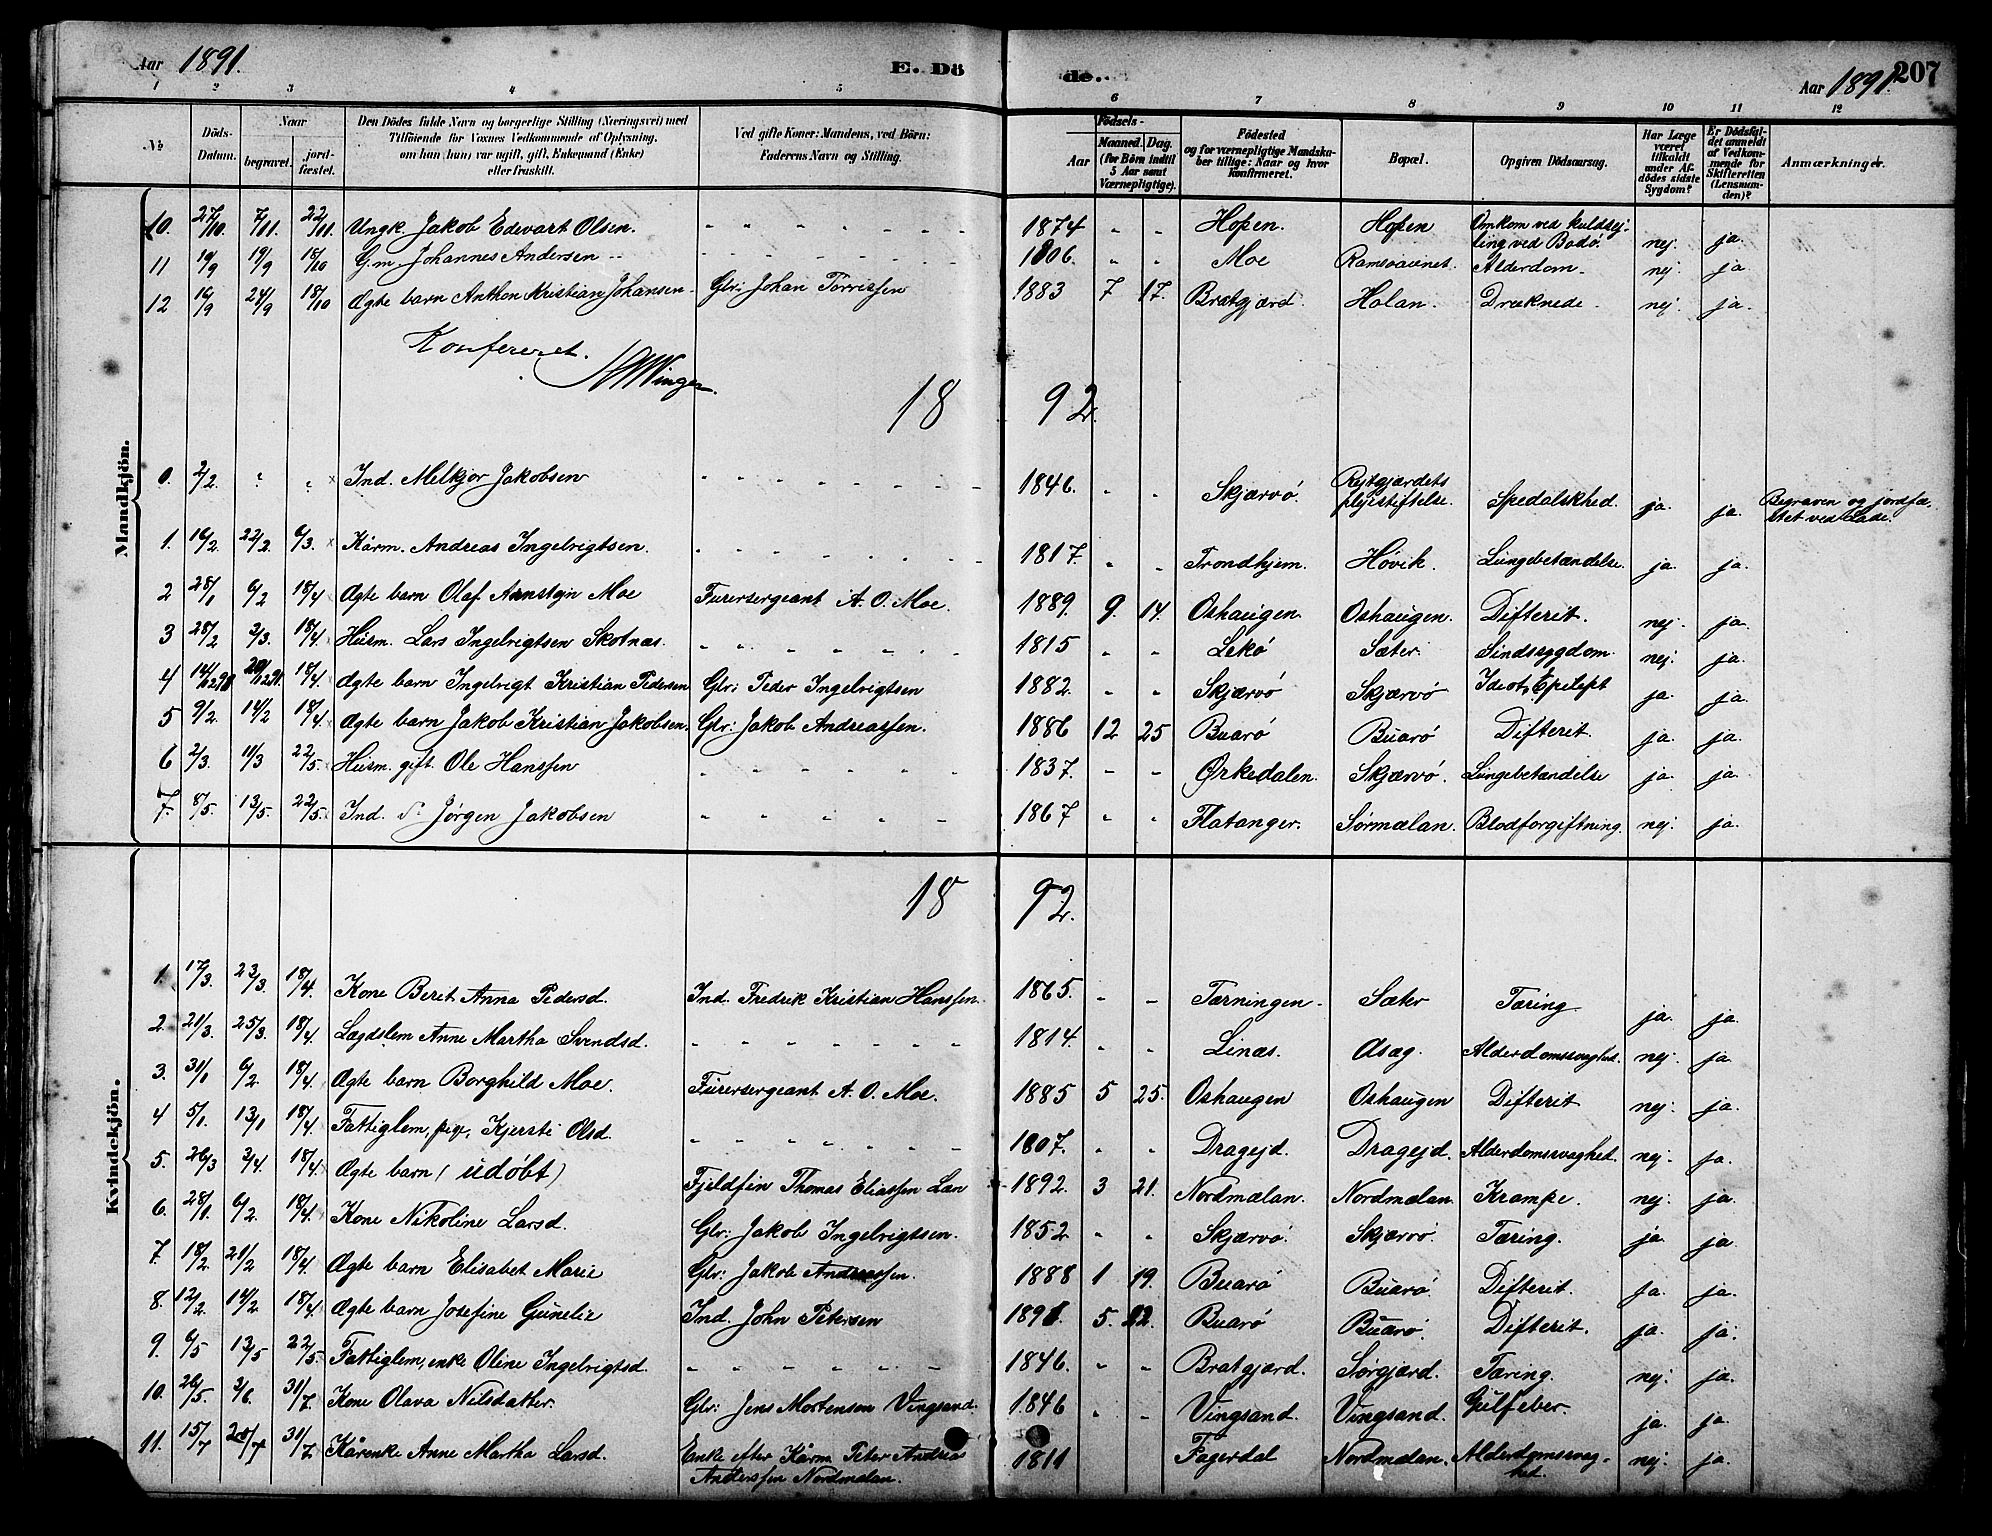 Aar 1891.
E. Döde.
Aar 1891. 207
1 2 3 4 5 6 7 8 9 10 11 12
No
Döds-Datum.
Naar
begravet.
jordfæstet.
Den Dödes fulde Navn og borgerlige Stilling (Næringsvei) med
Tilföiende for Voxnes Vedkommende af Oplysning,
om han (hun) var ugift, gift, Enkemand (Enke)
eller fraskilt.
Ved gifte Koner: Mandens, ved Börn:
Faderens Navn og Stilling.
Födsels-
Aar
Maaned. Dag.
(for Börn indtil
5 Aar samt
Værnepligtige).
Födested
og for værnepligtige Mandskaber tillige: Naar og hvor
konfirmeret.
Bopæl.
Opgiven Dödsaarsag.
Har Læge
været
tilkaldt
under Afdödes sidste
Sygdom?
Er Dödsfaldet anmeldt
af Vedkommende for
Skifteretten
(Lensmanden)?
Anmærkninger.
Mandkjön.
10. 27/10 7/11 22/11 Ungk. Jakob Edvart Olsen. 1874 Hopen. Hopen Omkom ved kuldsejling ved Bodö. nej. ja.
11 19/9 19/9 18/10 G.m Johannes Andersen 1806. Moe Ramsøavnet. Alderdom nej. ja
12 16/9 24/9 18/10 Ægte barn Anthon Kristian Johansen Gbr: Johan Torrissen 1883 7 17. Bratgjærd. Holan. Druknede. nej. ja.
Konfereret.
18 92.
0. 2/2. Ind. Melkjor Jakobsen 1846. Skjærvö. Rejtgjærdets plejestiftelse. Spedalskhed. ja. ja. Begraven og jordfæstet ved Lade.
1. 16/2 22/2. 6/3. Kårm. Andreas Ingebrigtsen. 1817. Trondhjem. Høvik. Lungebetændelse. ja. ja.
2 28/1 6/2 18/4 Ægte barn Olaf Arnstein Moe Furersergeant A. O. Moe. 1889. 9. 14. Oshaugen Oshaugen. Difterit. nej. ja.
3 28/2 2/3. 18/4. Husm. Lars Ingebrigtsen Skotnæs. 1815 Lekö Sæter. Sindssygdom. nej. ja.
4 14/12 91 20/12 91. 18/4. Ægte barn Ingebrigt Kristian Pedersen Gbr: Peder Ingebrigtsen 1882. Skjærvö Skjærvö Idiot, Epilept ja. ja.
5 9/2. 14/2 18/4 Ægte barn Jakob Kristian Jakobsen. Gbr: Jakob Andreassen. 1886 12 25 Buarö Buarö Difterit. ja. ja.
6 2/3. 11/3 22/5. Husm. gift Ole Hanssen 1837. Ørkedalen. Skjærvö. Lungebetændelse ja. ja
7. 8/5. 13/5. 22/5. Ind. S. Jørgen Jakobsen 1867 Flatanger. Sørmælan. Blodforgiftning. nej. ja.
Kvindekjön.
18 92.
1. 17/3. 23/3. 18/4. Kone Berit Anna Pedersd. Ind. Fredrik Kristian Hanssen. 1865. Tærningen Sæter Tæring ja. ja.
2. 21/3. 25/3. 18/4. Lægdslem Anne Martha Svendsd. 1814. Linæs. Asæg. Alderdomssvaghed. nej. ja
3. 31/1 6/2 18/4. Ægte barn Borghild Moe. Furersergeant A. O. Moe. 1885 5 25. Oshaugen Oshaugen Difterit nej. ja.
4 5/1. 13/1 18/4. Fattiglem, pige, Kjersti Olsd. 1807. Dragejd. Dragejd. Alderdomssvaghed. nej. ja.
5. 26/3 2/4. 18/4. Ægte barn (udøbt) Fjeldfin Thomas Eliassen Lan 1892. 3 21. Nordmælan. Nordmælan. Krampe. nej. ja.
6. 28/1. 6/2. 18/4. Kone Nikoline Larsd. Gbr: Jakob Ingebrigtsen. 1852 Skjærvö. Skjærvö. Tæring. ja. ja
7. 18/2. 21/2 18/4. Ægte barn Elisabet Marie Gbr: Jakob Andreassen. 1888 1 19. Buarö Buarö. Difterit. ja. ja.
8. 12/2. 14/2 18/4. Ægte barn Josefine Gunelie Ind. John Petersen 1891. 5. 22. Buarö Buarö. Difterit. ja. ja.
9. 6/5 13/5 22/5. Fattiglem, enke Oline Ingebrigtsd. 1846. Bratgjærd. Sørgjærd. Tæring. nej. ja.
10. 26/5. 2/6. 31/7 Kone Olava Nilsdatter. Gbr: Jens Mortensen Vingsand. 1846 Vingsand. Vingsand. Gulfeber. ja. ja
11. 15/7 20/7 31/7. Kårenke Anne Martha Larsd. Enke efter Kårm. Peter Andreas Anderssen Nordmælan. 1811 Fagerdal Nordmælan. Alderdomssvaghet. nej. ja.